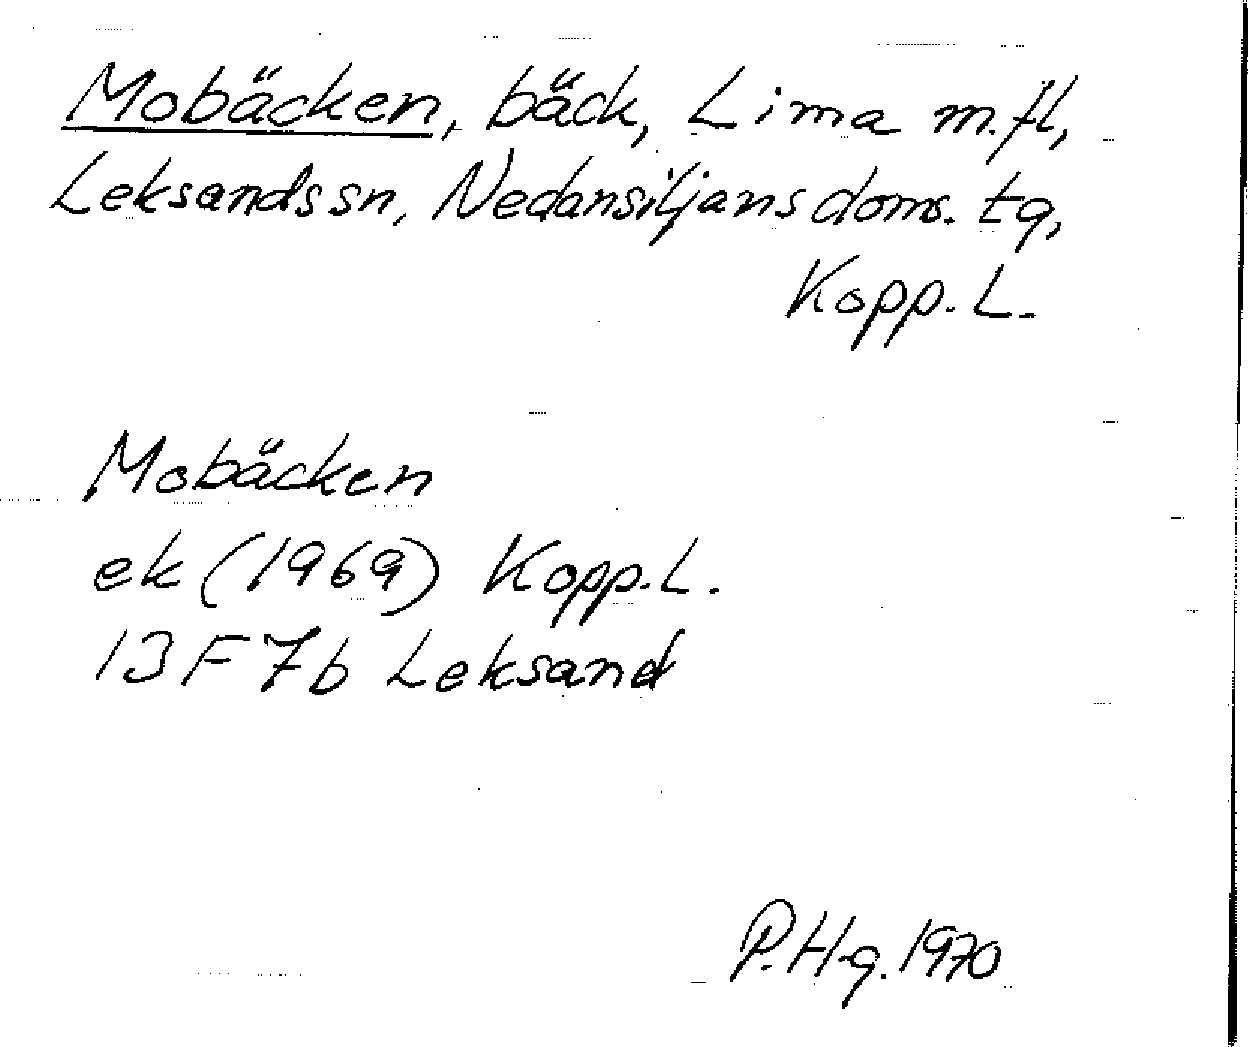 Mobäcken, bäck, Lima m.fl,
Leksands sn, Nedansiljans doms. tg,
Kopp. L.
Mobäcken
ek (1969) Kopp. L.
13 F 7b Leksand
P. Hg. 1970